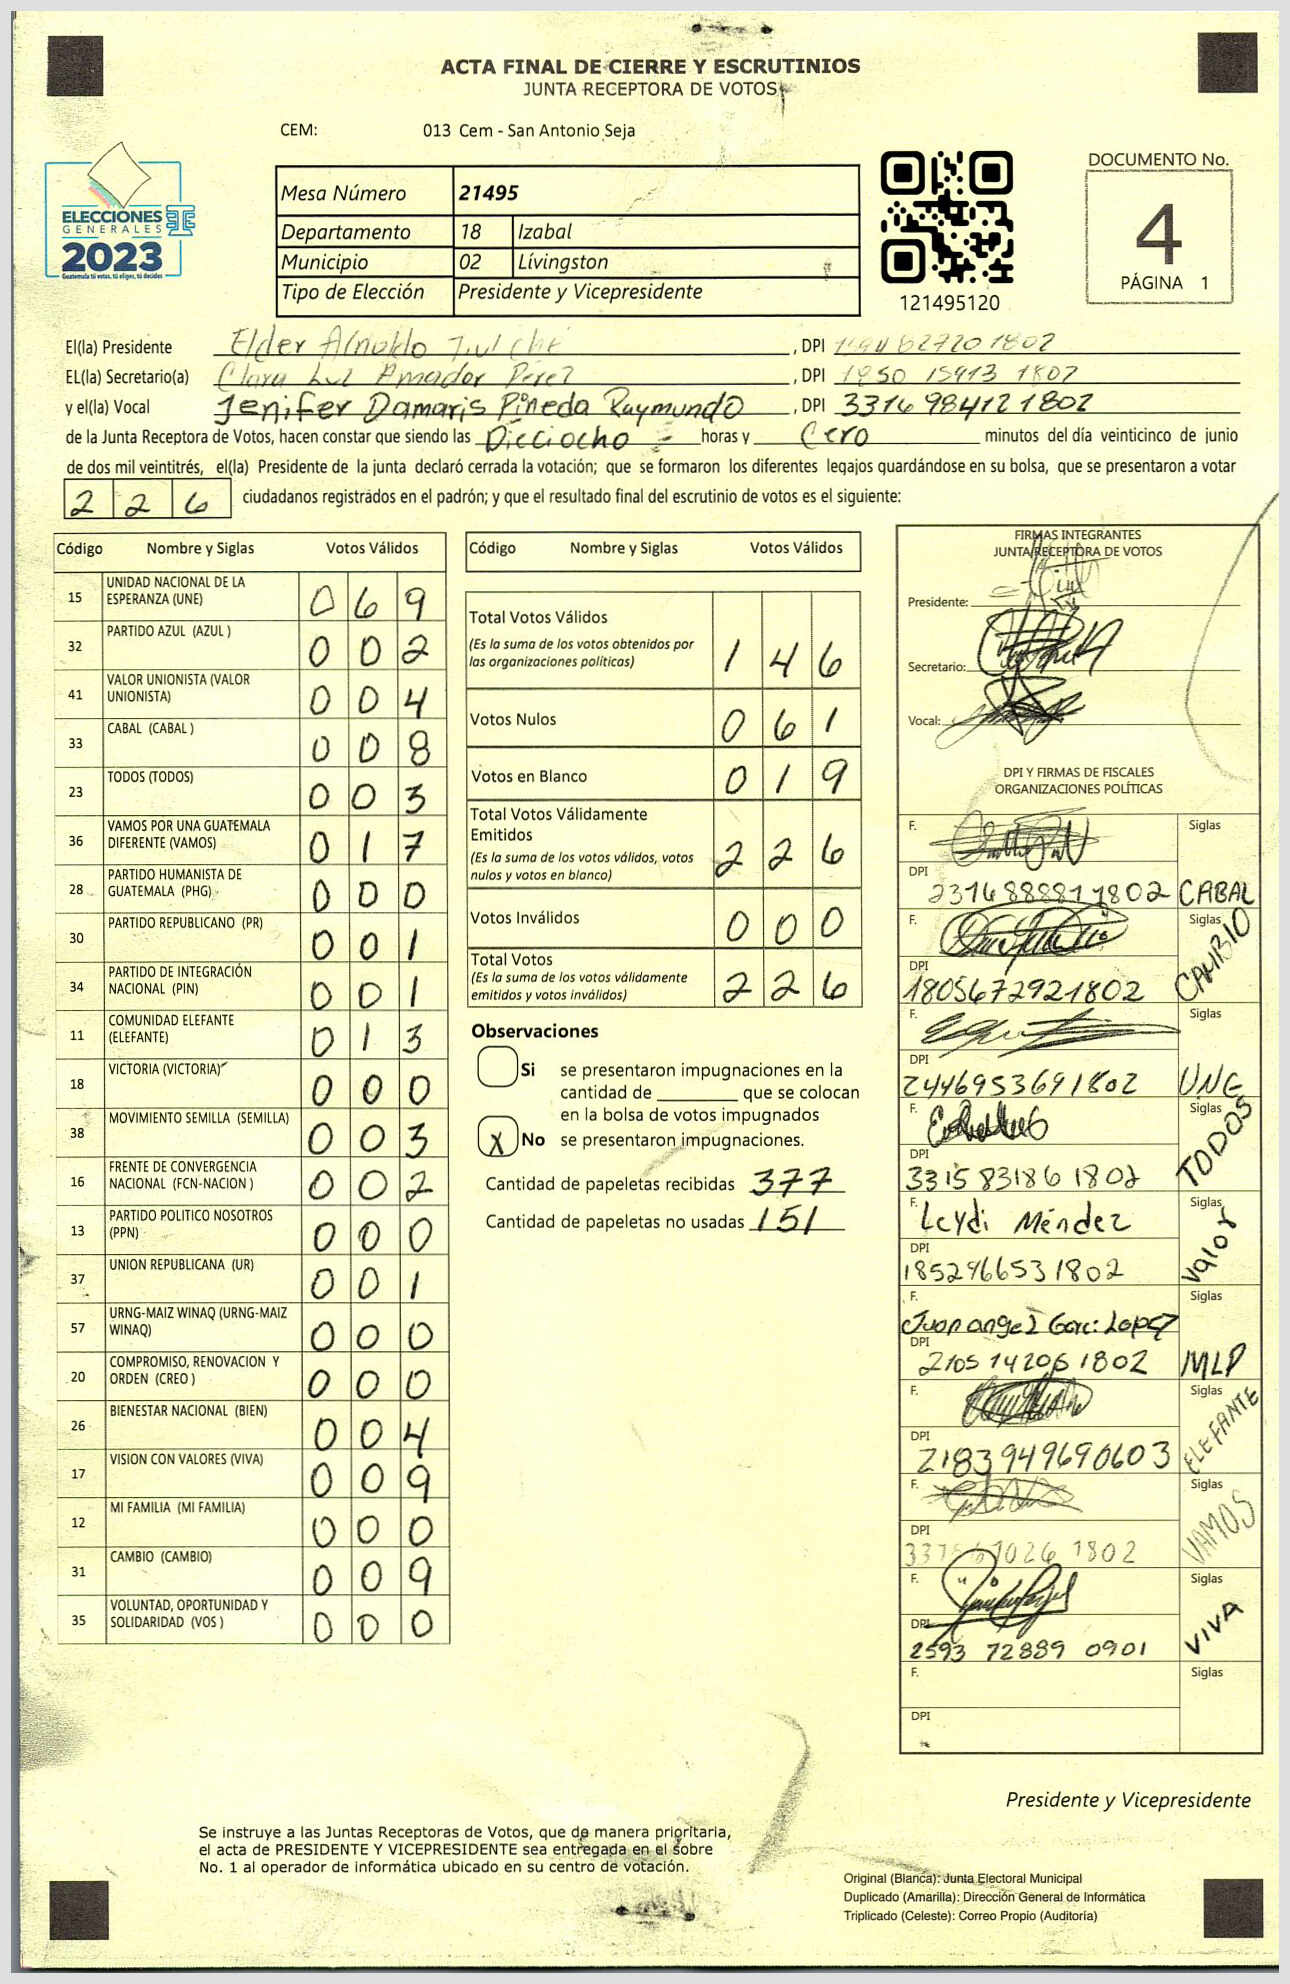 ACTA FINAL DE CIERRE Y ESCRUTINIOS
JUNTA RECEPTORA DE VOTOS
CEM: 013 Cem - San Antonio Seja
ELECCIONES
GENERALES
2023
Guatemala tú votas, tú eliges, tú decides
Mesa Número 21495
Departamento 18 Izabal
Municipio 02 Lívingston
Tipo de Elección Presidente y Vicepresidente
121495120
DOCUMENTO No.
4
PÁGINA 1
El(la) Presidente Elder Arnoldo , DPI
EL(la) Secretario(a) Clara Luz Amador Perez , DPI 1850 15913 1802
y el(la) Vocal Jenifer Damaris Pineda Raymundo , DPI 3316984121802
de la Junta Receptora de Votos, hacen constar que siendo las Dieciocho horas y Cero minutos del día veinticinco de junio
de dos mil veintitrés, el(la) Presidente de la junta declaró cerrada la votación; que se formaron los diferentes legajos guardándose en su bolsa, que se presentaron a votar
2 2 6 ciudadanos registrados en el padrón; y que el resultado final del escrutinio de votos es el siguiente:
Código Nombre y Siglas Votos Válidos
15 UNIDAD NACIONAL DE LA
ESPERANZA (UNE) 0 6 9
32 PARTIDO AZUL (AZUL ) 0 0 2
41 VALOR UNIONISTA (VALOR
UNIONISTA) 0 0 4
33 CABAL (CABAL ) 0 0 8
23 TODOS (TODOS) 0 0 3
36 VAMOS POR UNA GUATEMALA
DIFERENTE (VAMOS) 0 1 7
28 PARTIDO HUMANISTA DE
GUATEMALA (PHG) 0 0 0
30 PARTIDO REPUBLICANO (PR) 0 0 1
34 PARTIDO DE INTEGRACIÓN
NACIONAL (PIN) 0 0 1
11 COMUNIDAD ELEFANTE
(ELEFANTE) 0 1 3
18 VICTORIA (VICTORIA) 0 0 0
38 MOVIMIENTO SEMILLA (SEMILLA) 0 0 3
16 FRENTE DE CONVERGENCIA
NACIONAL (FCN-NACION ) 0 0 2
13 PARTIDO POLITICO NOSOTROS
(PPN) 0 0 0
37 UNION REPUBLICANA (UR) 0 0 1
57 URNG-MAIZ WINAQ (URNG-MAIZ
WINAQ) 0 0 0
20 COMPROMISO, RENOVACION Y
ORDEN (CREO ) 0 0 0
26 BIENESTAR NACIONAL (BIEN) 0 0 4
17 VISION CON VALORES (VIVA) 0 0 9
12 MI FAMILIA (MI FAMILIA) 0 0 0
31 CAMBIO (CAMBIO) 0 0 9
35 VOLUNTAD, OPORTUNIDAD Y
SOLIDARIDAD (VOS ) 0 0 0
Código Nombre y Siglas Votos Válidos
Total Votos Válidos
(Es la suma de los votos obtenidos por
las organizaciones políticas) 1 4 6
Votos Nulos 0 6 1
Votos en Blanco 0 1 9
Total Votos Válidamente
Emitidos
(Es la suma de los votos válidos, votos
nulos y votos en blanco) 2 2 6
Votos Inválidos 0 0 0
Total Votos
(Es la suma de los votos válidamente
emitidos y votos inválidos) 2 2 6
Observaciones
Si se presentaron impugnaciones en la
cantidad de ________ que se colocan
en la bolsa de votos impugnados
X No se presentaron impugnaciones.
Cantidad de papeletas recibidas 377
Cantidad de papeletas no usadas 151
FIRMAS INTEGRANTES
JUNTA RECEPTORA DE VOTOS
Presidente:
Secretario:
Vocal:
DPI Y FIRMAS DE FISCALES
ORGANIZACIONES POLÍTICAS
F. Siglas
DPI
2316888811802 CABAL
F. Siglas
DPI CAMBIO
1805672921802
F. Siglas
DPI
2446953691802 UNE
F. Siglas
DPI TODOS
3315 83186 1802
F. Leydi Méndez Siglas
DPI Valor
1852966531802
F. Juan angel Garci Lopez Siglas
DPI
2105 14206 1802 MLP
F. Siglas
DPI ELEFANTE
2183949690603
F. Siglas
DPI VAMOS
1026 1802
F. Siglas
DPI VIVA
2593 72889 0901
F. Siglas
DPI
Presidente y Vicepresidente
Se instruye a las Juntas Receptoras de Votos, que de manera prioritaria,
el acta de PRESIDENTE Y VICEPRESIDENTE sea entregada en el sobre
No. 1 al operador de informática ubicado en su centro de votación.
Original (Blanca): Junta Electoral Municipal
Duplicado (Amarilla): Dirección General de Informática
Triplicado (Celeste): Correo Propio (Auditoría)